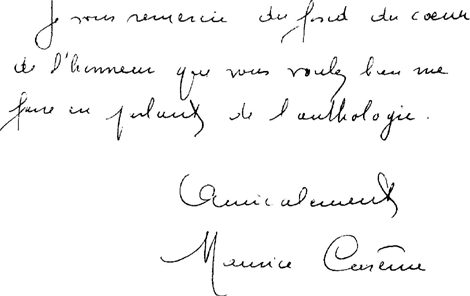 Je vous remercie du fond du coeur
de l'honneur que vous voulez bien me
faire en parlant de l'anthologie.
Amicalement
Maurice Carême